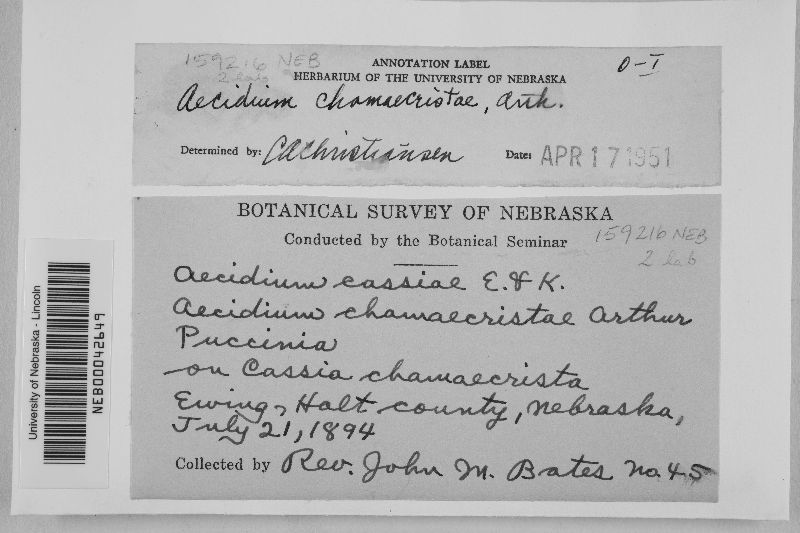 159216 NEB
2 lab
ANNOTATION LABEL
HERBARIUM OF THE UNIVERSITY OF NEBRASKA
O-I
Aecidium chamaecristae, Arth.
Determined by: CAChristiansen
Date: APR 17 1951
BOTANICAL SURVEY OF NEBRASKA
Conducted by the Botanical Seminar
159216 NEB
2 lab
Aecidium cassiae E. & K.
Aecidium chamaecristae Arthur
Puccinia
on Cassia chamaecrista
Ewing, Holt county, Nebraska,
July 21, 1894
Collected by Rev. John M. Bates No. 45
University of Nebraska - Lincoln
NEB00042649